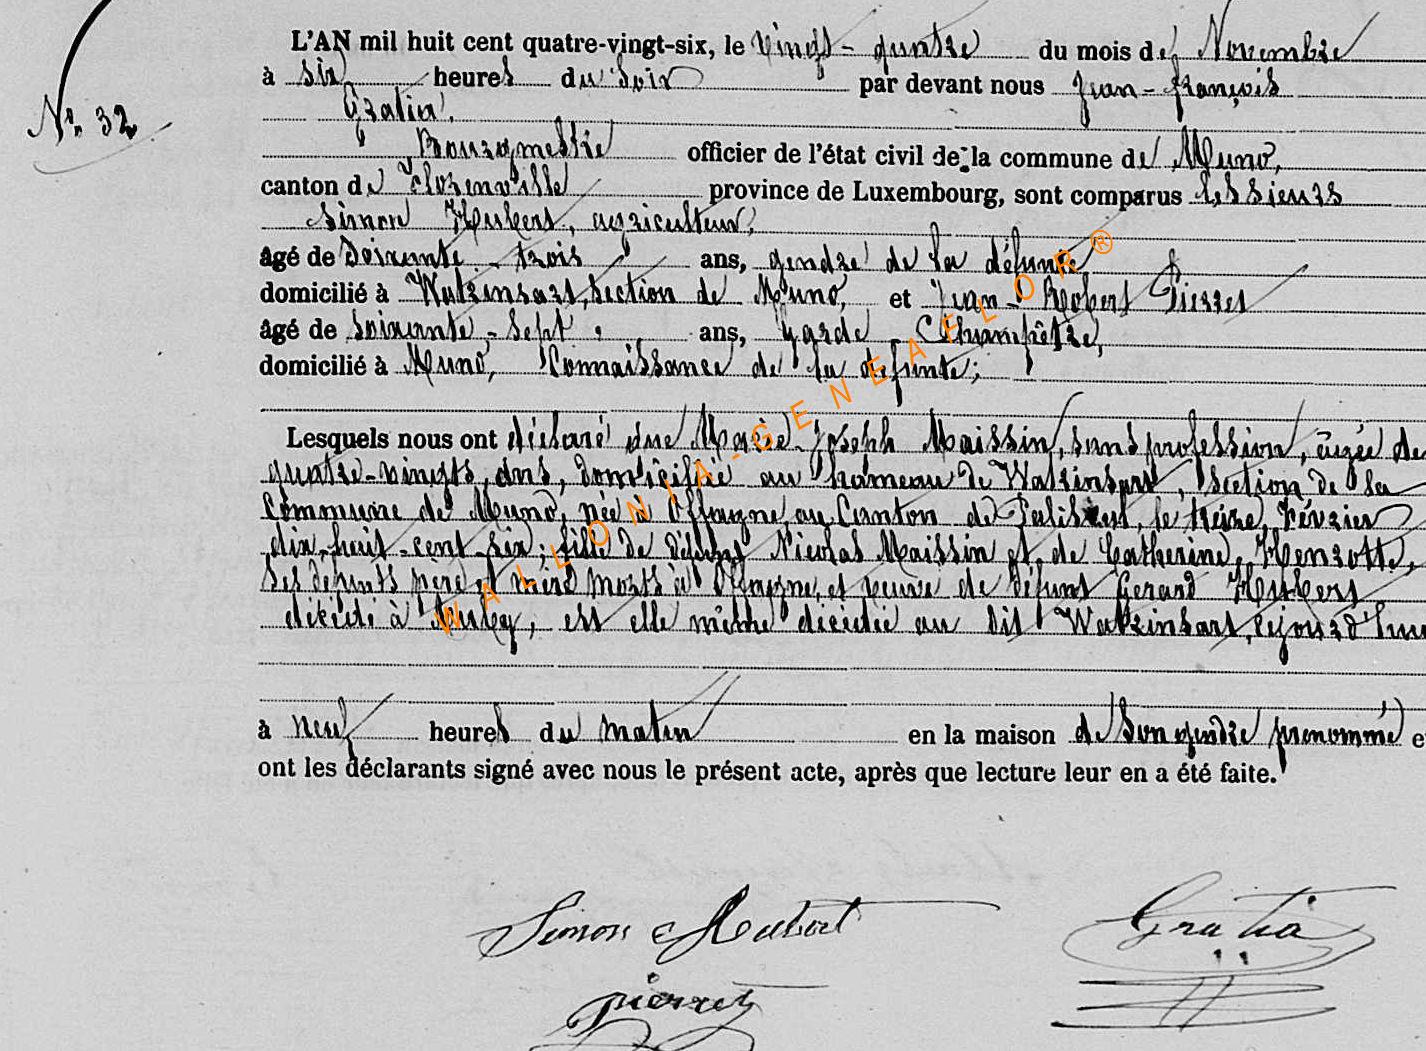 N°. 32
L'AN mil huit cent quatre-vingt-six, le vingt-quatre du mois de Novembre
à six heures du Soir par devant nous Jean-françois
Gratia,
Bourgmestre officier de l'état civil de la commune de Muno,
canton de Florenville province de Luxembourg, sont comparus les sieurs
Simon Hubert, agriculteur,
âgé de Soixante-trois ans, gendre de la défunte
domicilié à Watrinsart, Section de Muno, et Jean-Robert Pierret
âgé de Soixante-Sept ans, Garde Champêtre,
domicilié à Muno, Connaissance de la défunte;
Lesquels nous ont déclaré que Marie-Joseph Maissin, sans profession, âgée de
quatre-vingts, ans, domiciliée au hameau de Watrinsart, Section de la
Commune de Muno, née à Offagne, au Canton de Paliseul, le treize, Février
dix-huit-cent-six; fille de défunts Nicolas Maissin et de Catherine, Henrotte,
Ses défunts père et mère morts à Offagne, et veuve de défunt Gerard
décédé à est elle même décédée au dit Watrinsart, cejourd'hui
à neuf heures du matin en la maison de Son gendre prénommé et
ont les déclarants signé avec nous le présent acte, après que lecture leur en a été faite.
Simon Hubert
Gratia
pierret
WALLONIA-GENEAFLOR®